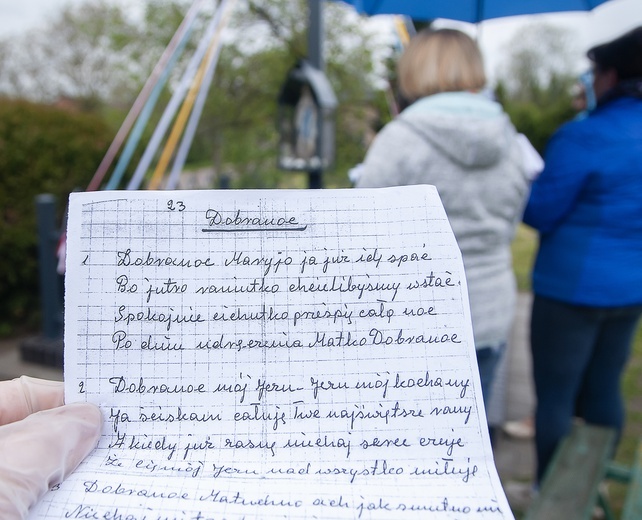 23
Dobranoc
1 Dobranoc Maryjo ja już idę spać
Bo jutro raniutko chcielibyśmy wstać.
Spokojnie cichutko prześpię całą noc
Po dniu udręczenia Matko Dobranoc
2 Dobranoc mój Jezu - Jezu mój kochany
Ja ściskam całuję Twe najświętsze rany
A kiedy już zasnę niechaj serce czuje
Że cię mój Jezu nad wszystko miłuje
3 Dobranoc Matuchno ach jak smutno mi
Niechaj